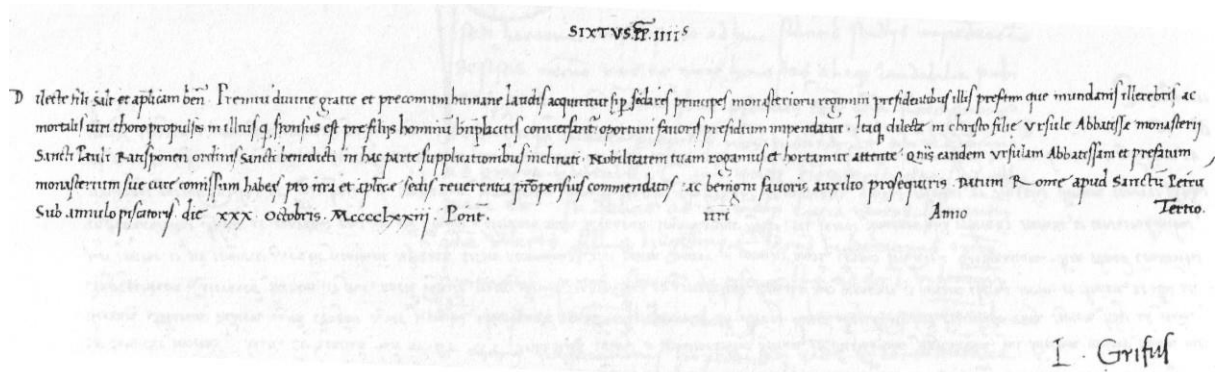 SIXTVS PP. IIIIs
Dilecte fili salt et aplicam ben. Premiu divine gratie et preconium humane laudis acquiritur si p seculares principes monasterioru regimini presidentibus illis presertim que mundanis illecebris ac
mortalis viri thoro propulsis in illius q. sponsus est pre filijs hominu bnplacitis conversant oportuni favoris presidium impendatur. Itaq dilecte in christo filie Ursule Abbatisse monasterij
Sancti Pauli Ratisponen ordinis Sancti benedicti in hac parte supplicationibus inclinati. Nobilitatem tuam rogamus et hortamur attente. Qtis eandem Ursulam Abbatissam et prefatum
monasterium sue cure comissum habeas pro nra et aplice sedis reverentia propensius commendatos ac benigni favoris auxilio prosequaris. Datum Rome apud Sanctu Petru
Sub annulo piscatoris die XXX. Octobris. Mcccclxxiij. Pont. nri Anno Tertio.
I. Grifus